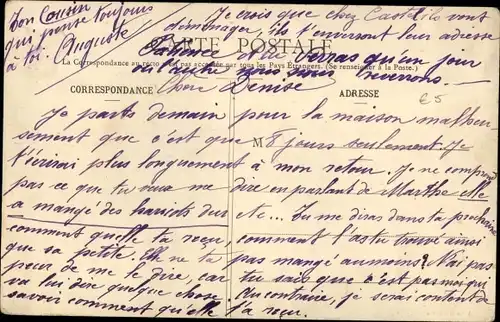 Ton Cousin
qui pense toujours
à toi. Auguste
Je crois que chez Castel ils vont
déménager, ils t'enverront leur adresse
CARTE POSTALE
Patience que verras qu'un jour
La Correspondance au recto n'est pas acceptée par tous les Pays Étrangers. (Se renseigner à la Poste.)
ou l'autre nous nous reverrons
chère Denise
CORRESPONDANCE
ADRESSE
€5
Je parts demain pour la maison malheu
sement que c'est que M 8 jours seulement. Je
t'écrirai plus longuement à mon retour. Je ne comprend
pas ce que tu veux me dire en parlant de Marthe elle
a mangé des haricots dur etc... Tu me diras dans ta prochaine
comment quelle ta reçu, comment l'as tu trouvé ainsi
que sa petite. On ne ta pas mangé au moins? N'ai pas
peur de me le dire, car tu sais que c'est pas moi qui
va lui dire quelque chose. Au contraire, je serai content de
savoir comment qu'elle t'a reçu.